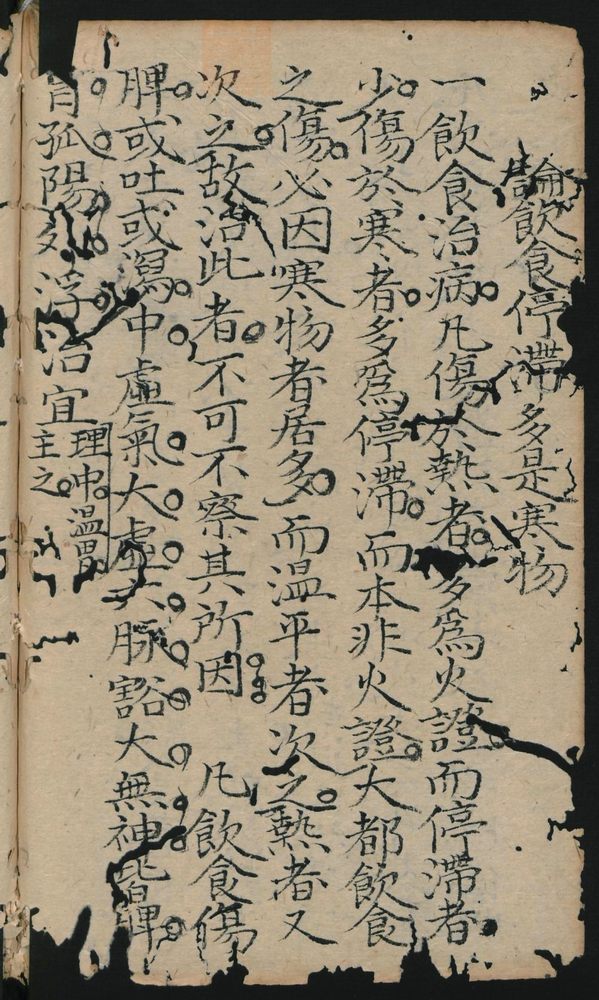 論飲食停滯多是寒物
一飲食治病凡傷於熱者多爲火證而停滯者
少傷於寒者多爲停滯而本非火證大都飲食
之傷必因寒物者居多而温平者次之熱者又
次之故治此者不可不察其所因 凡飲食傷
脾或吐或瀉中虛氣大虛六脉豁大無神皆脾
胃孤陽外浮治宜理中温胃主之